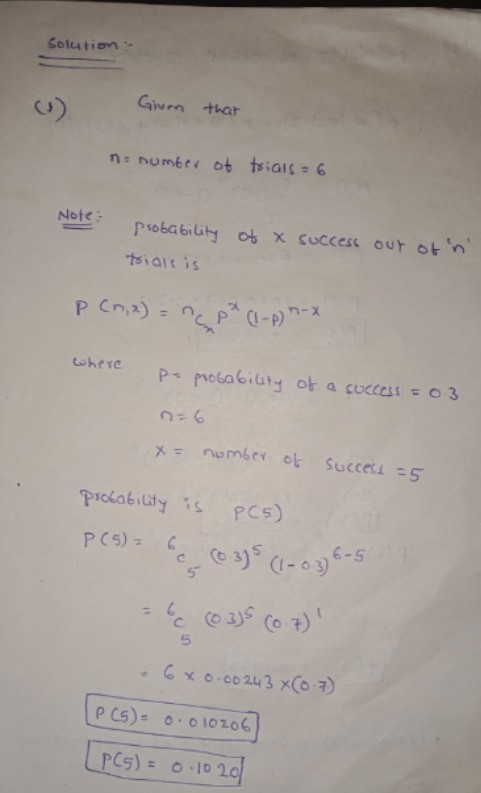 Solution:-
(1) Given that
n = number of trials = 6
Note:- probability of x success out of 'n'
trials is
P (n,x) = nCx p^x (1-p)^n-x
where
p = probability of a success = 0.3
n = 6
x = number of success = 5
probability is P(5)
P(5) = 6C5 (0.3)^5 (1-0.3)^6-5
= 6C5 (0.3)^5 (0.7)^1
= 6 x 0.00243 x (0.7)
P(5) = 0.010206
P(5) = 0.1020